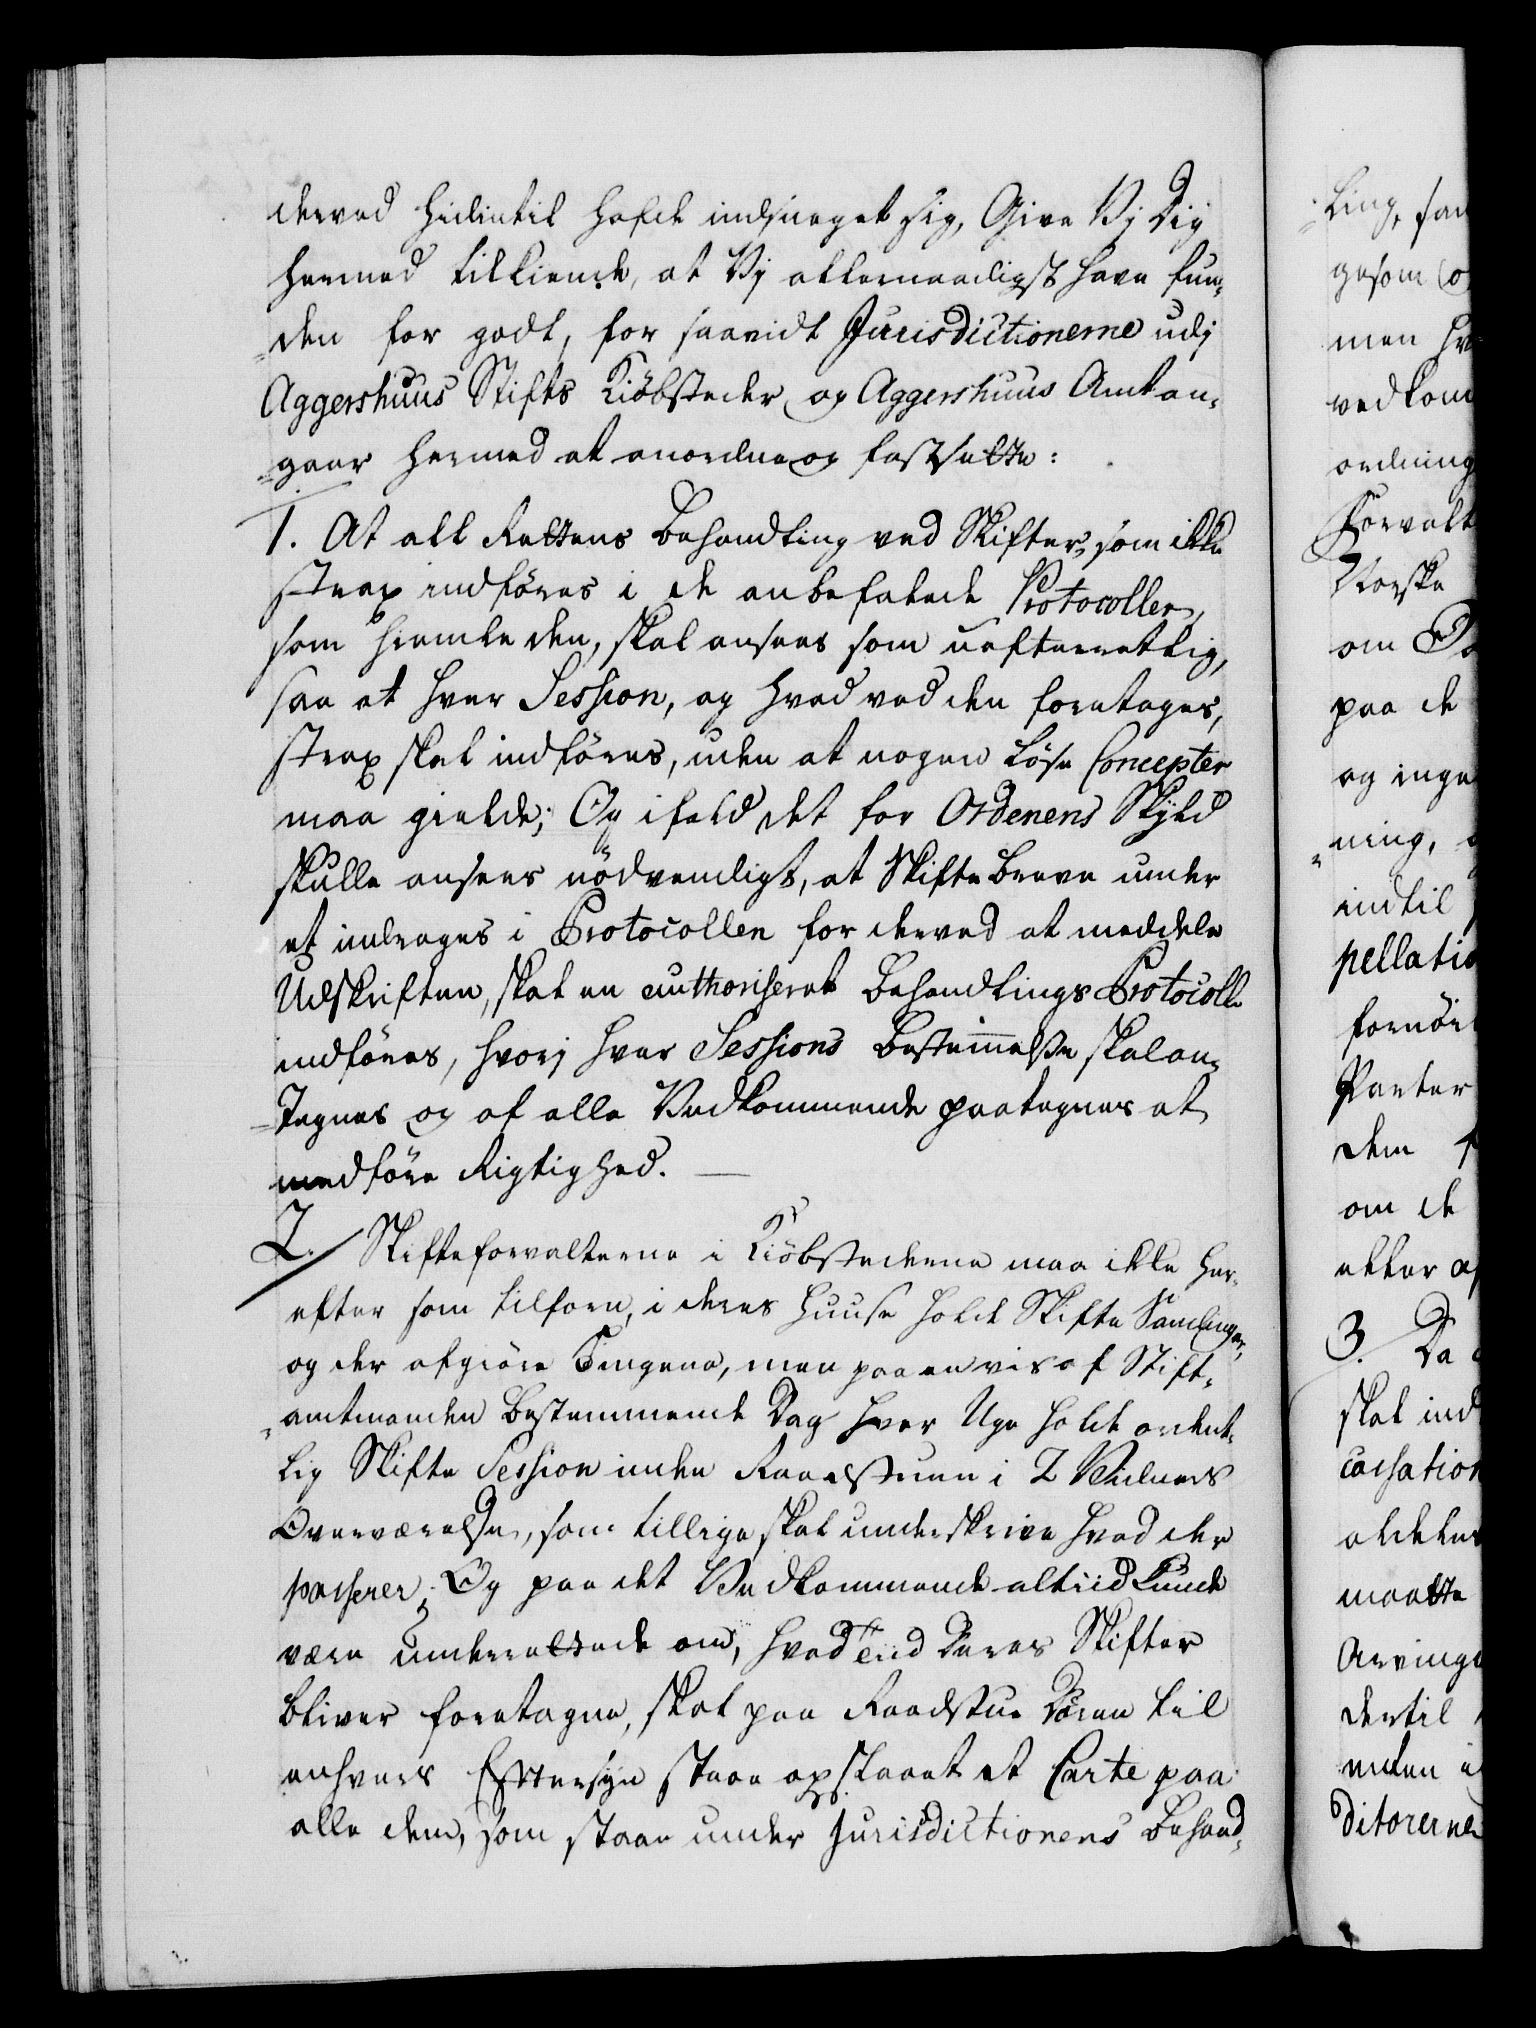 derved hidintil hafde indsneget sig, Give Vj Dig
hermed tilkiende, at Vj allernaadigst have fun¬
den for godt, for saavidt Jurisdictionerne udj
Aggershuus Stifts Kiöbsteder og Aggershuus Amt an¬
gaar hermed at anordne og fastsætte:
1. At all Rettens Behandling ved Skifter, som ikke
strax indföres i de anbefalede Protocoller,
som hiemle den, skal ansees som uefterrettlig,
saa at hver Session, og hvad ved den foretages,
strax skal indföres, uden at nogen löse Concepter
maa gielde; Og ifald det for Ordenens Skyld
skulle ansees nödvendigt, at Skifte Breve under
et inddrages i Protocollen for derved at meddele
Udskriften, skal en authoriseret Behandlings Protocoll
indföres, hvorj hver Sessions Bestemmelse skal an¬
tegnes og af alle Vedkommende paategnes at
medföre Rigtighed.
2. Skifteforvalterne i Kiöbstederne maa ikke her¬
efter som tilforn, i deres Huuse holde Skifte Samlinger,
og der afgiöre Tingene, men paa en vis af Stift¬
amtmanden bestemmende Dag hver Uge holde ordent¬
lig Skifte Session inden Raadstuen i 2 Vidners
Overværelse, som tillige skal underskrive hvad der
passerer; Og paa det Vedkommende altiid kunde
være underrettede om, hvad Tiid Deres Skifter
bliver foretagne, skal paa Raadstue Dören til
enhvers Eftersyn staae opslaaet et Carte paa
alle dem, som staae under Jurisdictionens Behand¬
ling, saa
gesom
men
vedkom
ordning
Forvalt
Norske
om
paa de
og inge
ning,
indtil
pellatio
fornöi
Parter
dem
om de
eller
3. Da
skal ind
cassation
aldeles
maatte
Arvinge
dertil
inden
ditorerne